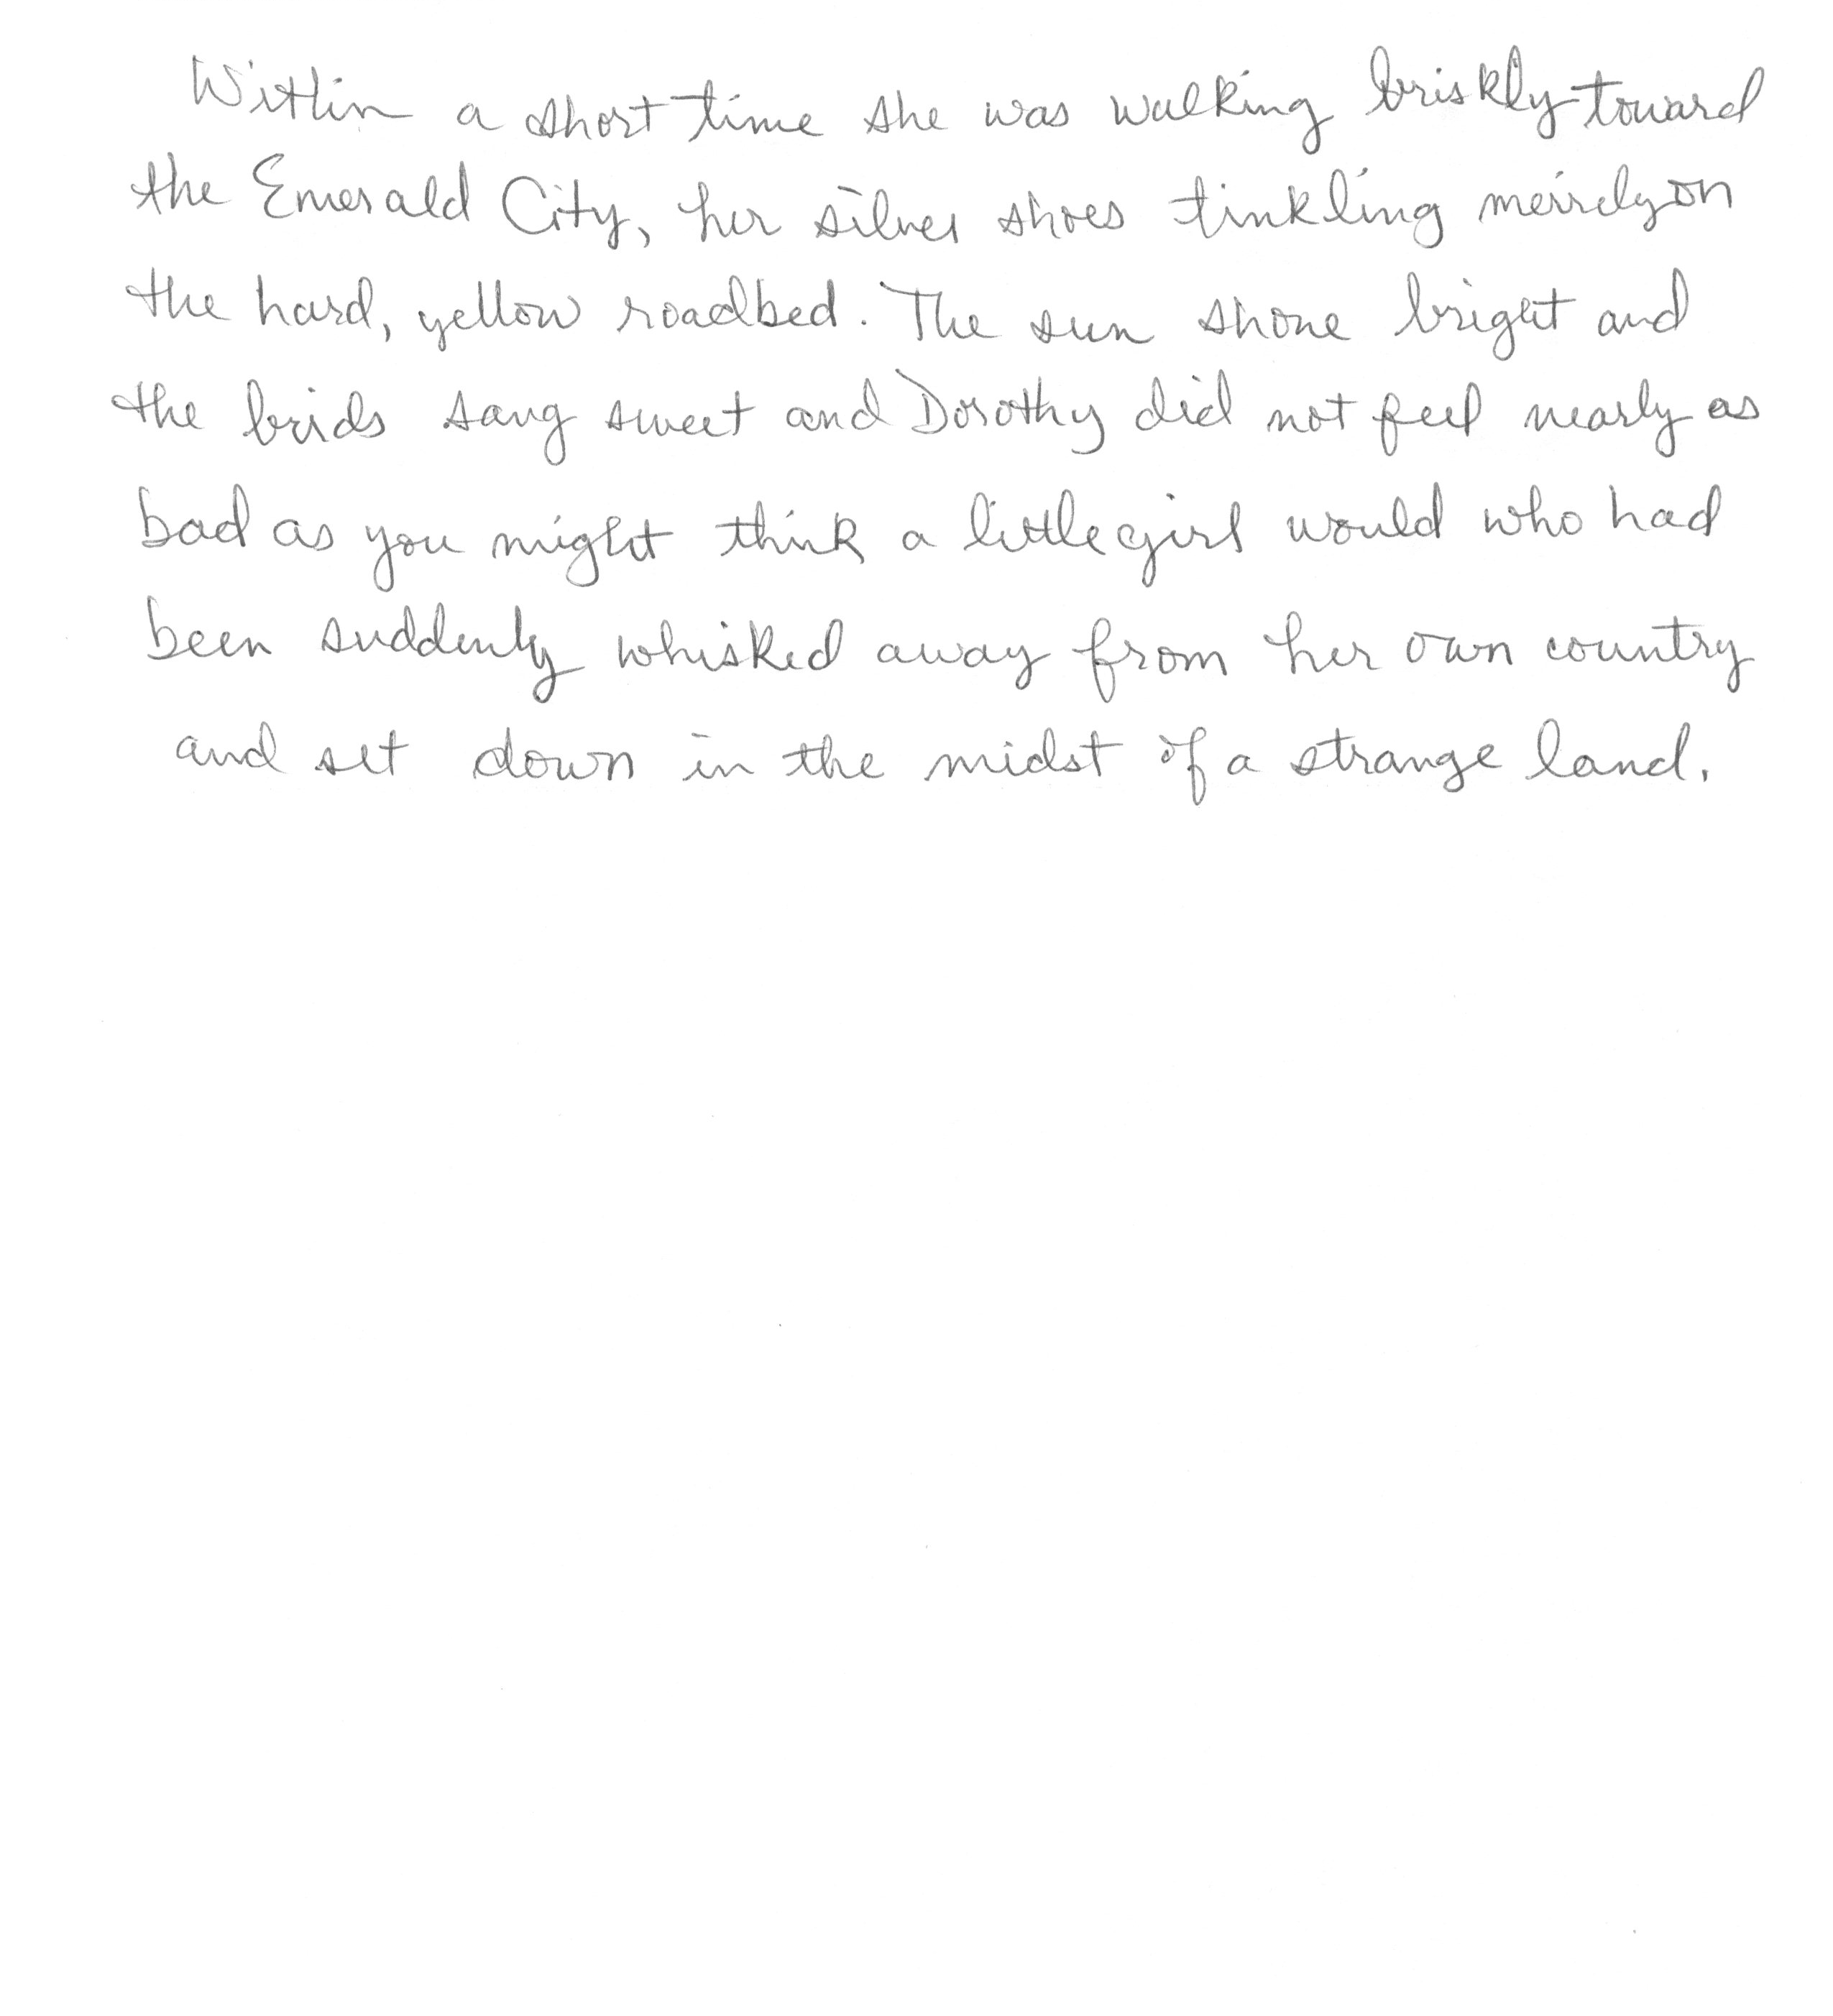 Within a short time she was walking briskly toward
the Emerald City, her silver shoes tinkling merrily on
the hard, yellow roadbed. The sun shone bright and
the birds sang sweet and Dorothy did not feel nearly as
bad as you might think a little girl would who had
been suddenly whisked away from her own country
and set down in the midst of a strange land.